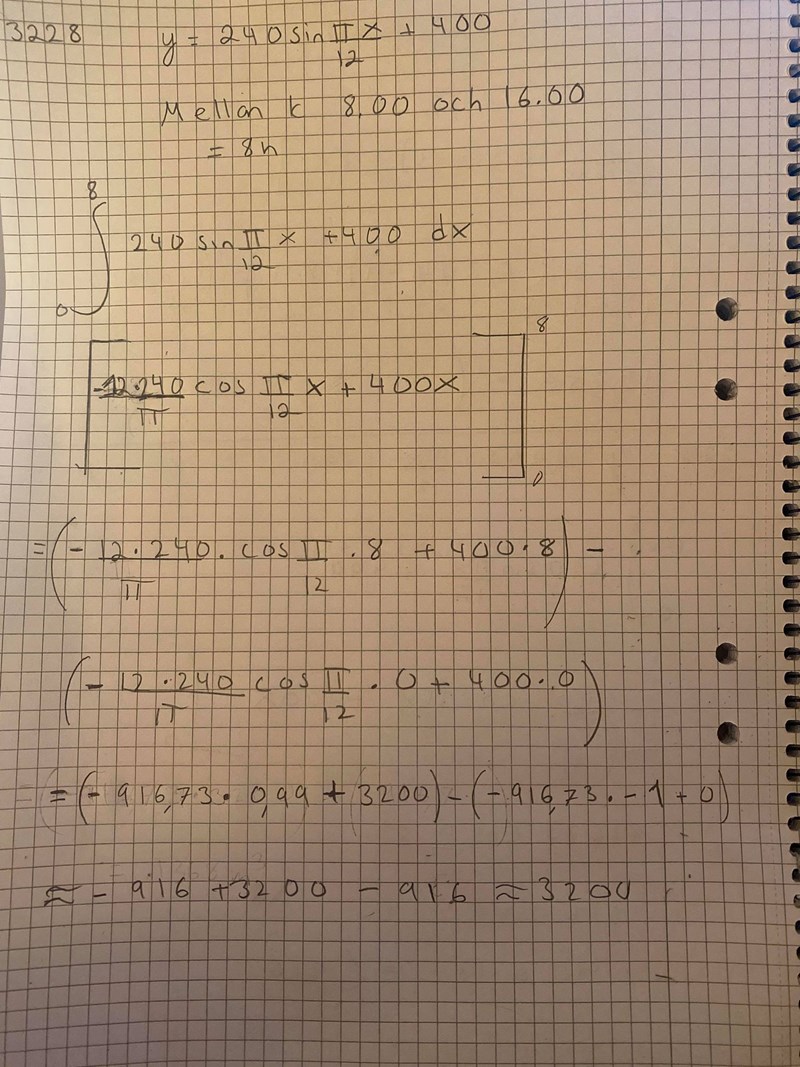 3228 y = 240 sin π/12 x + 400
Mellan k 8.00 och 16.00
= 8h
∫₀⁸ 240 sin π/12 x + 400 dx
[-12·240/π cos π/12 x + 400x]₀⁸
= (- 12·240/π · cos π/12 · 8 + 400·8) -
(- 12·240/π cos π/12 · 0 + 400·0)
= (- 916,73 · 0,99 + 3200) - (- 916,73 · - 1 + 0)
≈ - 916 + 3200 - 916 ≈ 3200